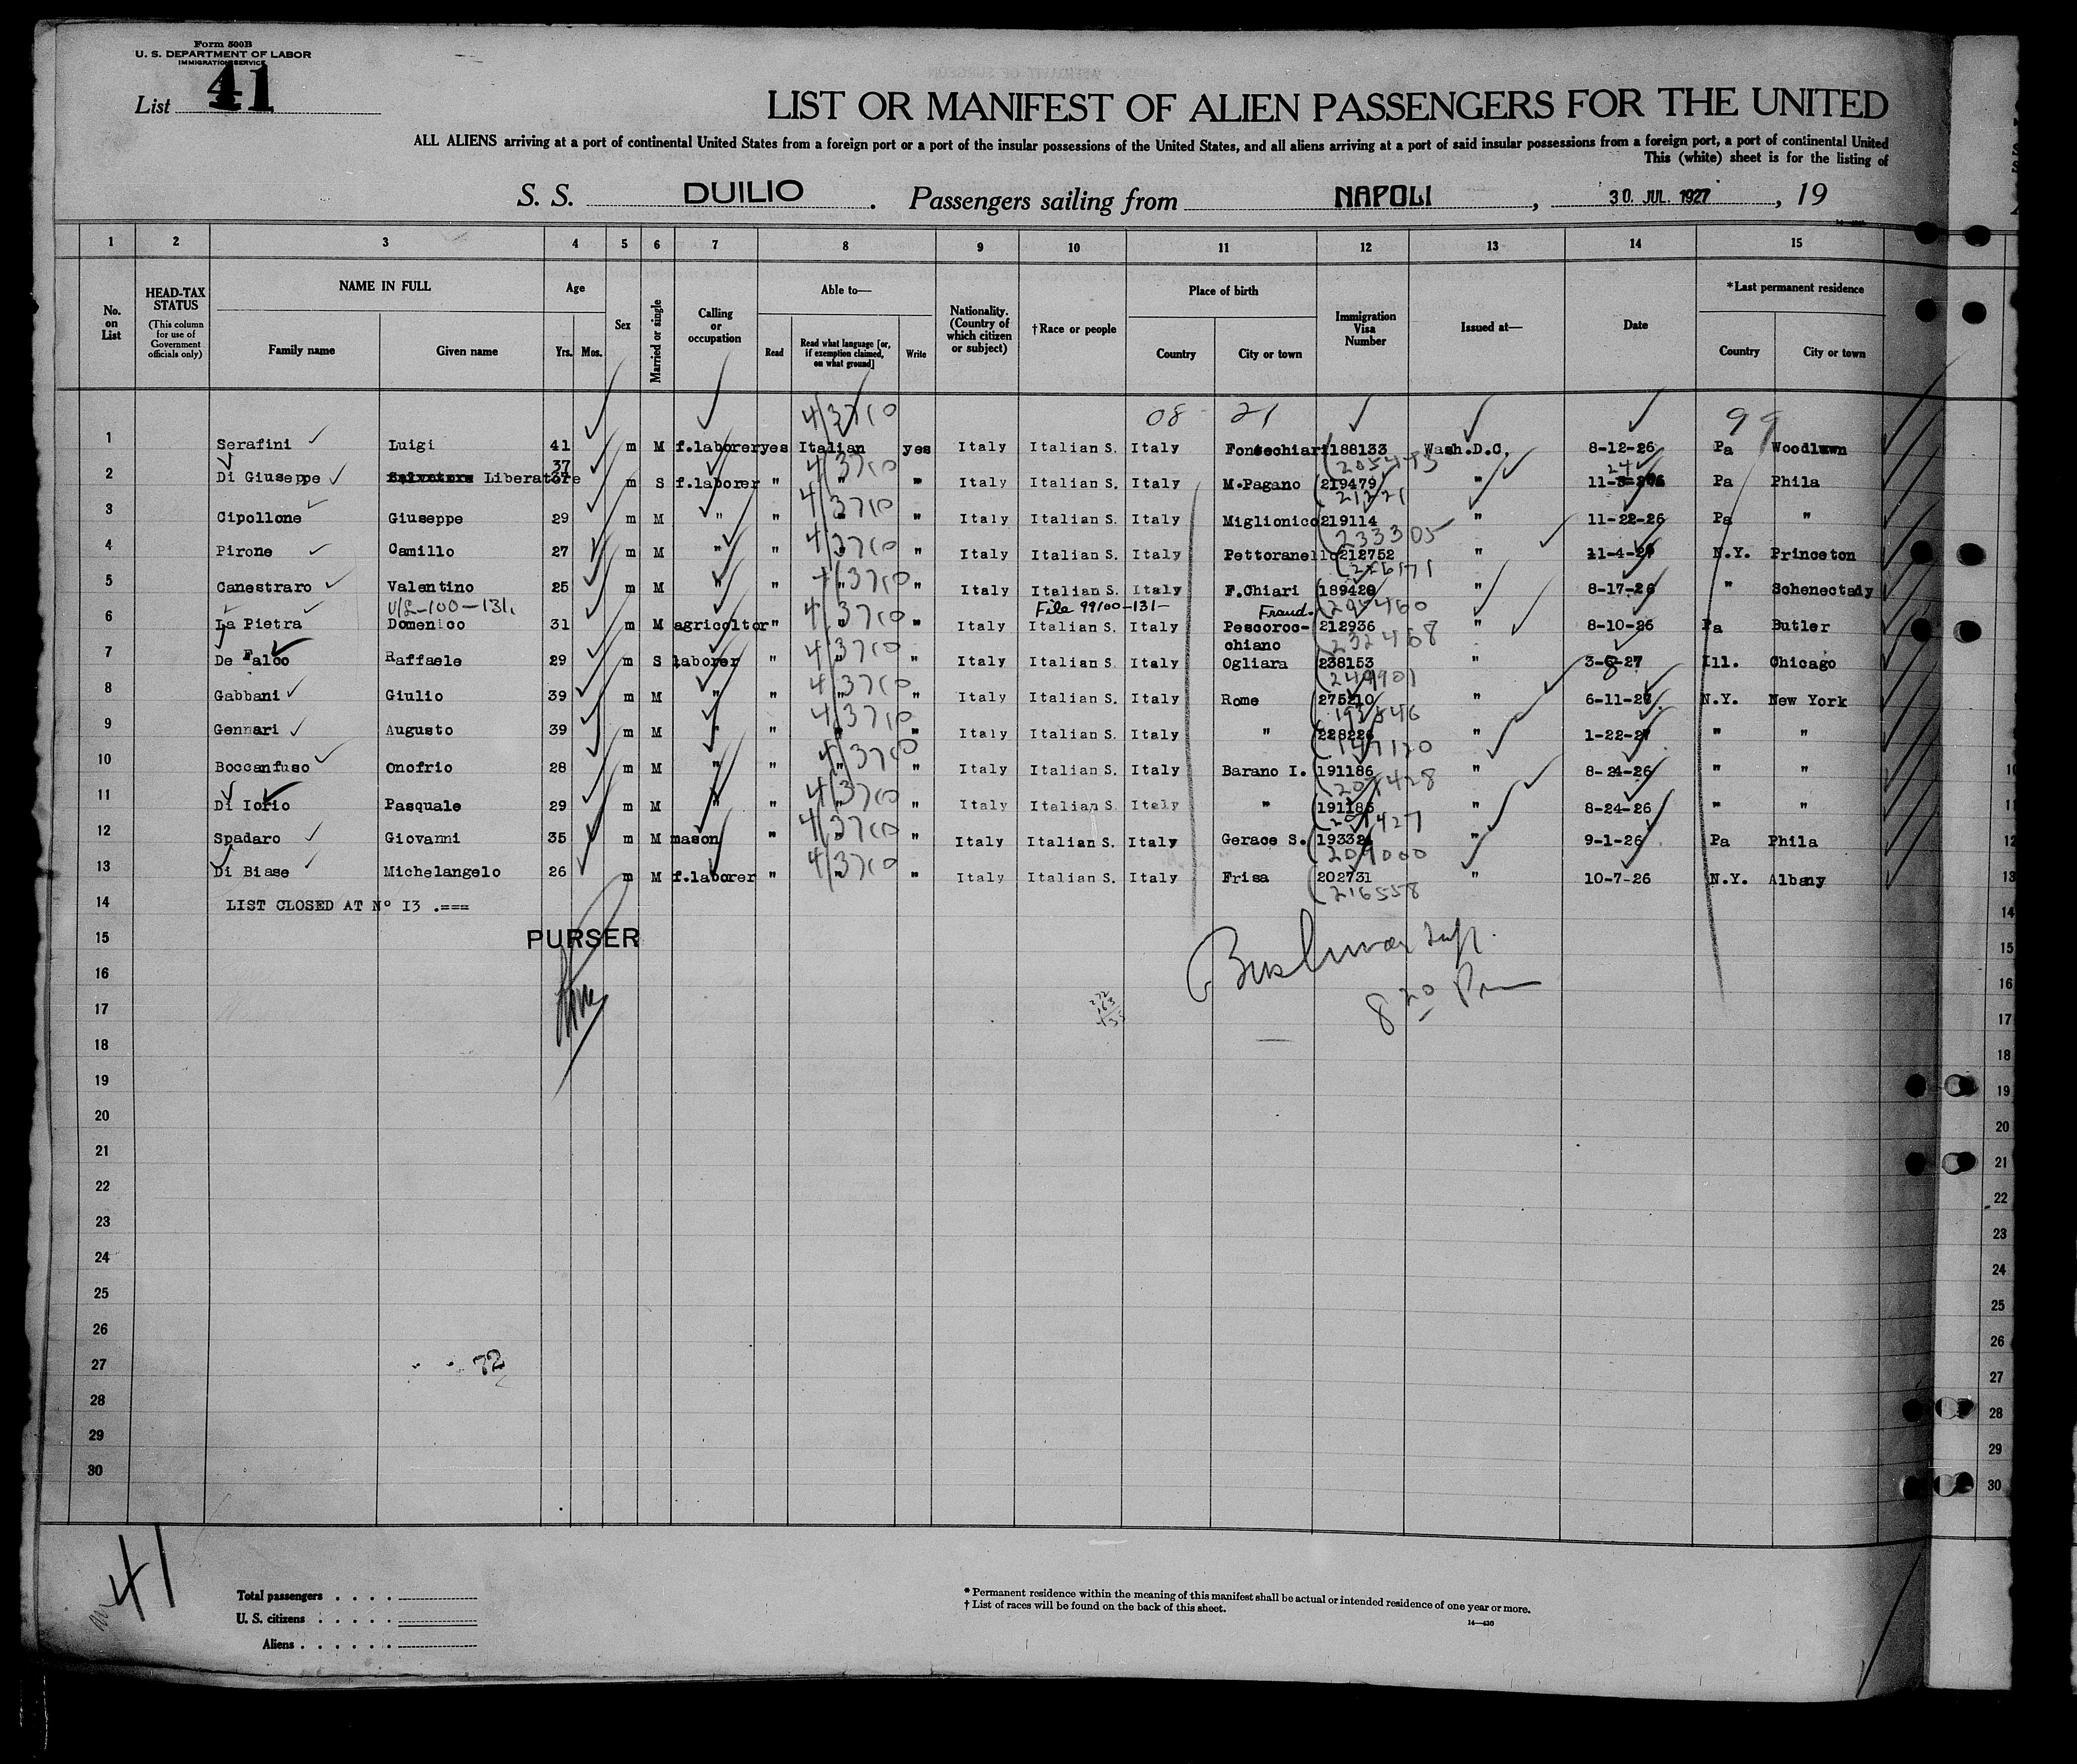 Form 500B
U. S. DEPARTMENT OF LABOR
IMMIGRATION SERVICE
List 41
LIST OR MANIFEST OF ALIEN PASSENGERS FOR THE UNITED
ALL ALIENS arriving at a port of continental United States from a foreign port or a port of the insular possessions of the United States, and all aliens arriving at a port of said insular possessions from a foreign port, a port of continental United
This (white) sheet is for the listing of
S. S. DUILIO . Passengers sailing from NAPOLI , 30 JUL. 1927 , 19
1 2 3 4 5 6 7 8 9 10 11 12 13 14 15
No. on List
HEAD-TAX STATUS
(This column for use of Government officials only)
NAME IN FULL
Family name Given name
Age
Yrs. Mos.
Sex
Married or single
Calling or occupation
Able to—
Read Read what language [or, if exemption claimed, on what ground] Write
Nationality. (Country of which citizen or subject)
†Race or people
Place of birth
Country City or town
Immigration Visa Number
Issued at—
Date
*Last permanent residence
Country City or town
4/3710 08 21 99
1 Serafini Luigi 41 m M f.laborer yes Italian yes Italy Italian S. Italy Fontechiari 188133 Wash.D.C. 8-12-26 Pa Woodlawn
37 4/3710 24
2 Di Giuseppe Liberatore m S f.laborer " " " Italy Italian S. Italy M.Pagano 219479 " Pa Phila
4/3710
3 Cipollone Giuseppe 29 m M " " " " Italy Italian S. Italy Miglionico 219114 " 11-22-26 Pa "
4/3710 233305
4 Pirone Camillo 27 m M " " " " Italy Italian S. Italy Pettoranello 212752 " 11-4-26 N.Y. Princeton
4/3710 226171
5 Canestraro Valentino 25 m M " " " " Italy Italian S. Italy F.Chiari 189420 " 8-17-26 " Schenectady
4/3710 File 99100-131- Fraud.
6 La Pietra Domenico 31 m M agricoltor " " " Italy Italian S. Italy Pescoroc-chiano 212936 " 8-10-26 Pa Butler
4/3710 232468
7 De Falco Raffaele 29 m S laborer " " " Italy Italian S. Italy Ogliara 238153 " 3-8-27 Ill. Chicago
4/3710 249901
8 Gabbani Giulio 39 m M " " " " Italy Italian S. Italy Rome 275210 " 6-11-27 N.Y. New York
4/3710
9 Gennari Augusto 39 m M " " " " Italy Italian S. Italy " 228226 " 1-22-27 " "
4/3710
10 Boccanfuso Onofrio 28 m M " " " " Italy Italian S. Italy Barano I. 191186 " 8-24-26 " "
4/3710 207428
11 Di Iorio Pasquale 29 m M " " " " Italy Italian S. Italy " 191185 " 8-24-26 " "
4/3710 207427
12 Spadaro Giovanni 35 m M mason " " " Italy Italian S. Italy Gerace S. " 9-1-26 Pa Phila
4/3710 209000
13 Di Biase Michelangelo 26 m M f.laborer " " " Italy Italian S. Italy Frisa 202731 " 10-7-26 N.Y. Albany
216558
14 LIST CLOSED AT N° I3 .===
15 PURSER
16
8 20 Pm
17
18
19
20
21
22
23
24
25
26
27 72
28
29
30
41
Total passengers
U. S. citizens
Aliens
* Permanent residence within the meaning of this manifest shall be actual or intended residence of one year or more.
† List of races will be found on the back of this sheet.
14—430